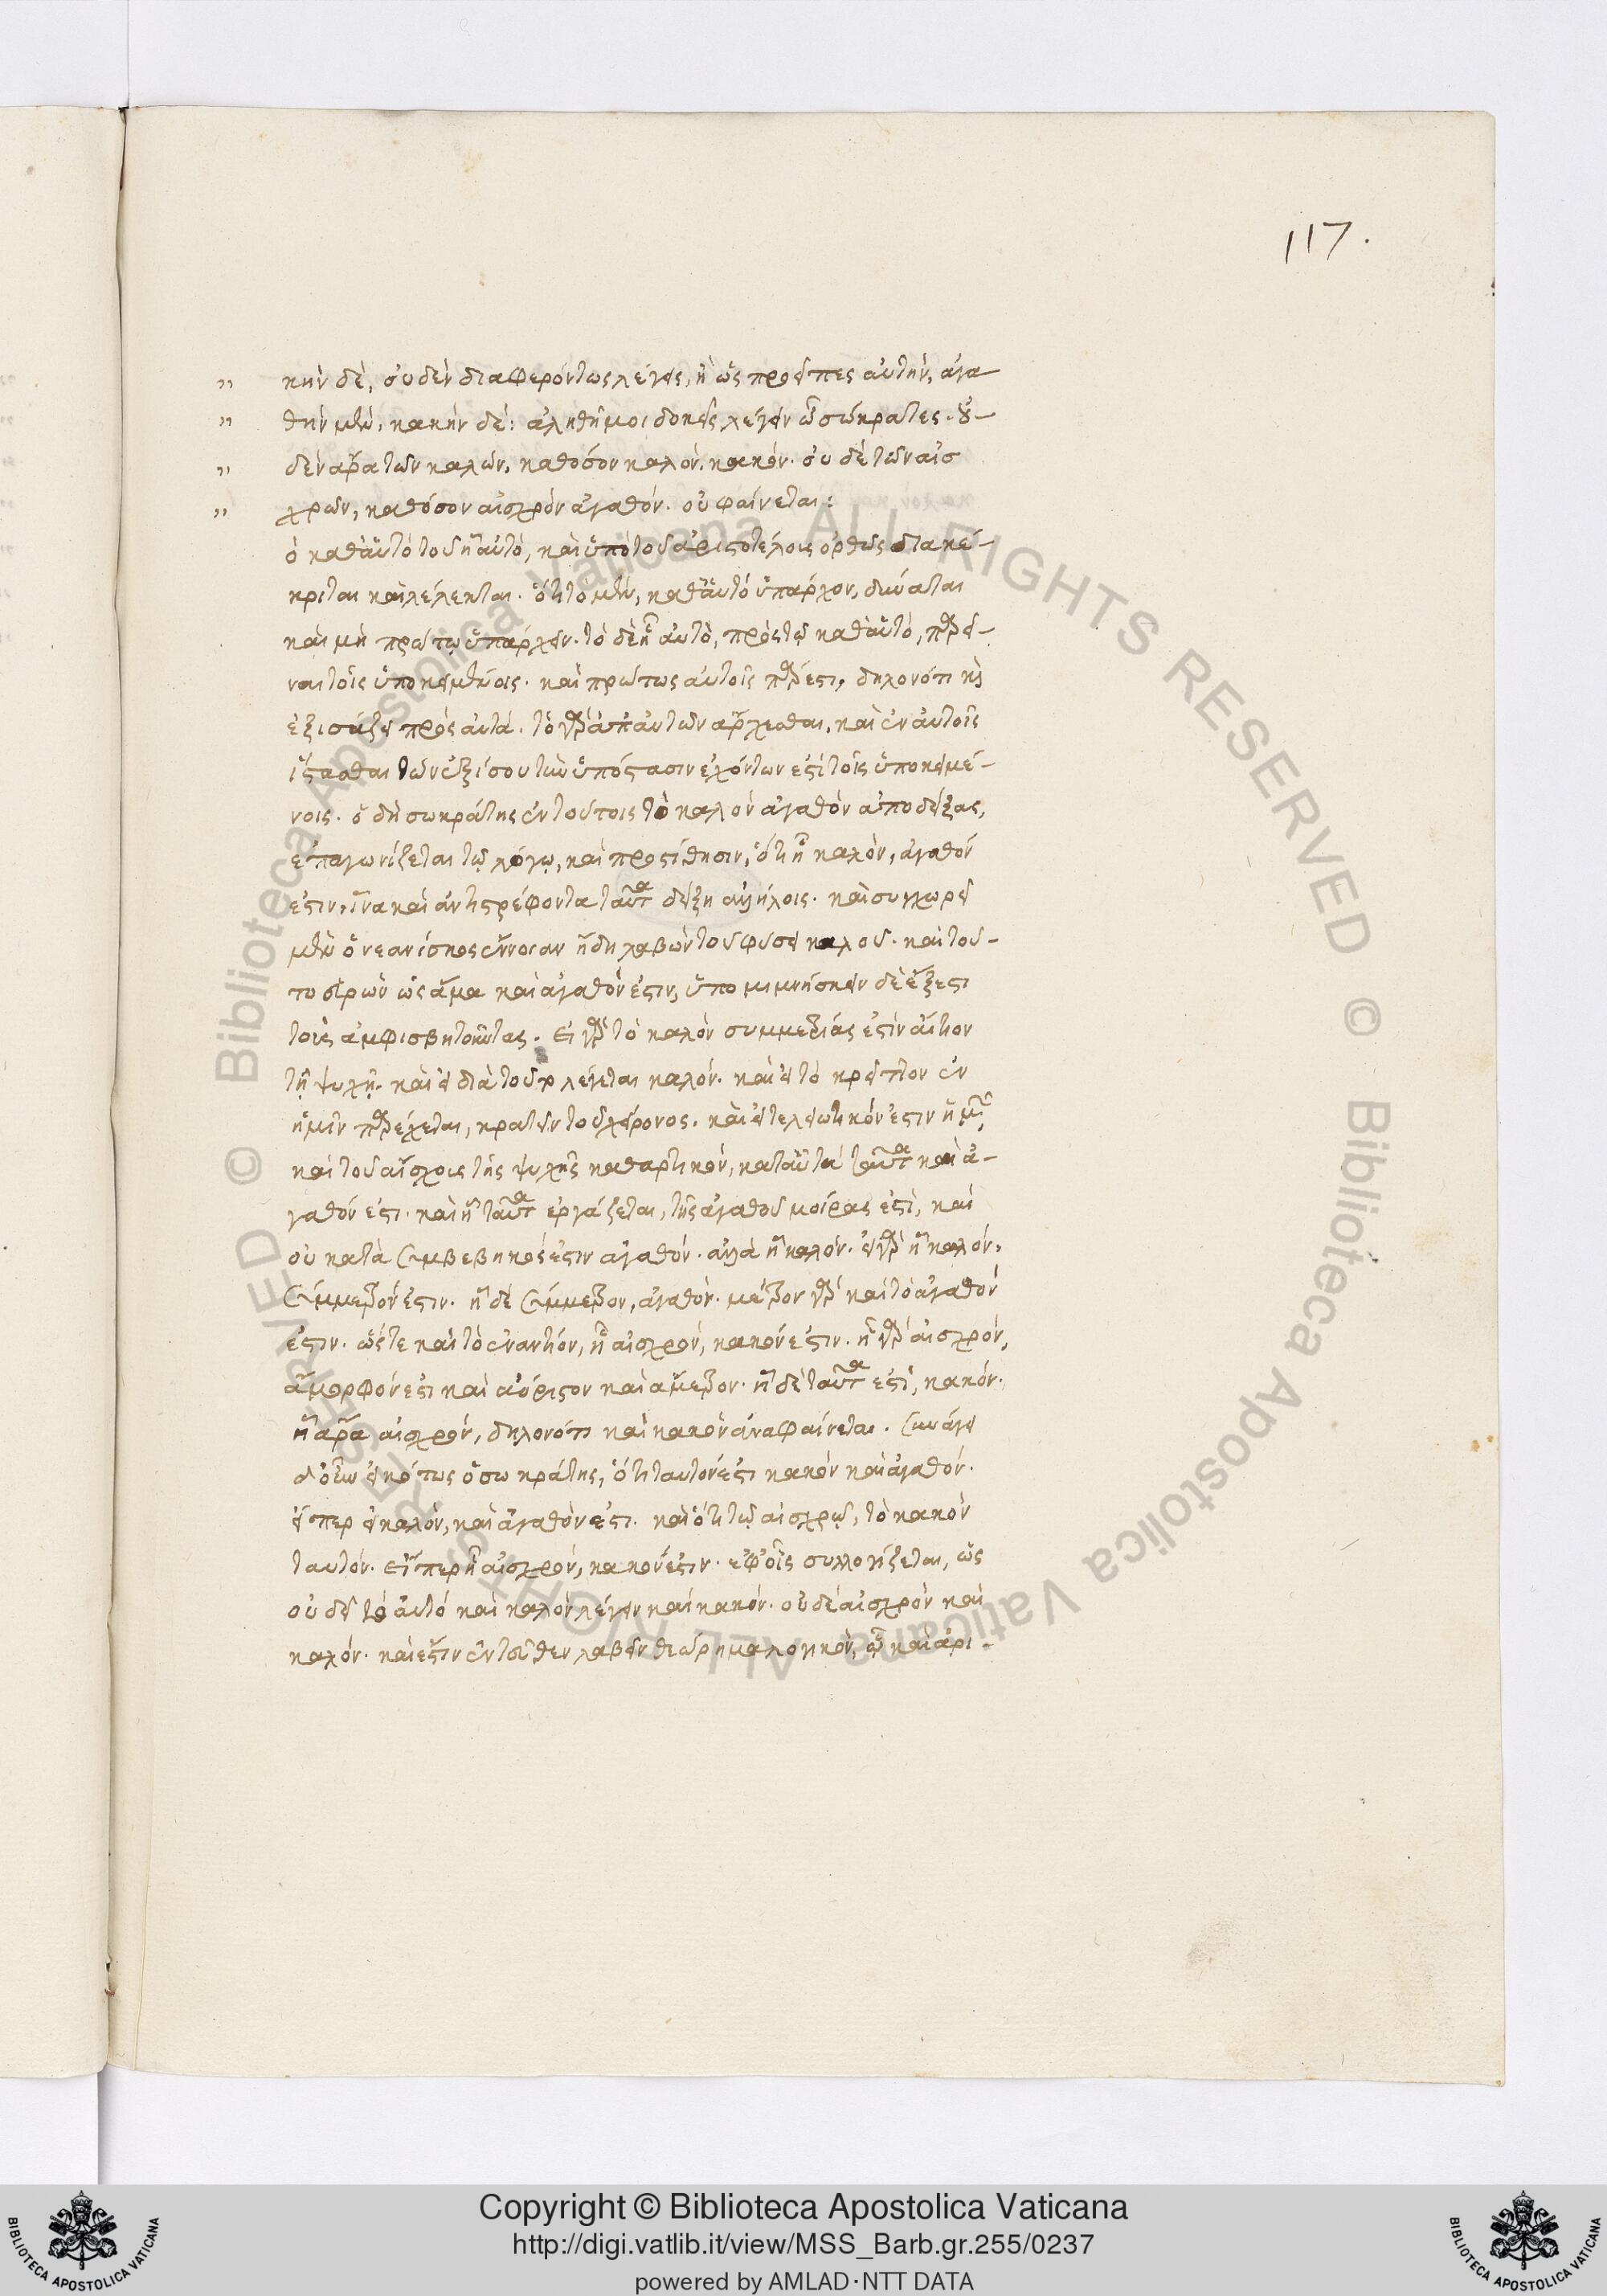 117.
„ κὴν δὲ, οὐδὲν διαφερόντως λέγεις, ἢ ὡς προσεῖπες αὐτὴν, ἀγα
„ θὴν μὲν, κακὴν δὲ: ἀληθῆ μοι δοκεῖς λέγειν ὦ σώκρατες. οὐ-
„ δὲν ἄρα τῶν καλῶν, καθόσον καλὸν, κακόν. οὐδὲ τῶν αἰσ
„ χρῶν, καθόσον αἰσχρὸν ἀγαθόν. οὐ φαίνεται:
ὁ καθ' αὑτὸ τοῦ ἧ αὐτὸ, καὶ ὑπὸ τοῦ ἀριστοτέλους ὀρθῶς διακέ-
κριται καὶ λέλεκται. ὅτι τὸ μὲν, καθ' αὑτὸ ὑπάρχον, δύναται
καὶ μὴ πρώτῳ ὑπάρχειν. τὸ δὲ ἧ αὐτὸ, πρὸς τῷ καθ' αὑτὸ, παρεῖ-
ναι τοῖς ὑποκειμένοις. καὶ πρώτως αὐτοῖς πάρεστι, δηλονότι καὶ
ἐξισάζει πρὸς αὐτά. τὸ γὰρ ἀπ' αὐτῶν ἄρχεσθαι, καὶ ἐν αὐτοῖς
ἵστασθαι τῶν ἐξίσου τὴν ὑπόστασιν ἐχόντων ἐστὶ τοῖς ὑποκειμέ-
νοις. ὁ δὴ σωκράτης ἐν τούτοις τὸ καλὸν ἀγαθὸν ἀποδείξας,
ἐπαγωνίζεται τῷ λόγῳ, καὶ προστίθησιν, ὅτι ἧ καλὸν, ἀγαθόν
ἐστιν, ἵνα καὶ ἀντιστρέφοντα ταῦτα δείξῃ ἀλλήλοις. καὶ συγχωρεῖ
μὲν ὁ νεανίσκος ἔννοιαν ἤδη λαβὼν τοῦ φύσει καλοῦ. καὶ τοῦ-
το ὁρῶν ὡς ἅμα καὶ ἀγαθόν ἐστιν, ὑπομιμνήσκειν δὲ ἔξεστι
τοὺς ἀμφισβητοῦντας. εἰ γὰρ τὸ καλὸν συμμετρίας ἐστὶν αἴτιον
τῇ ψυχῇ. καὶ εἰ διὰ τοῦτο λέγεται καλόν. καὶ εἰ τὸ κρεῖττον ἐν
ἡμῖν παρέχεται, κρατεῖν τοῦ χείρονος. καὶ εἰ τελειωτικόν ἐστιν ἡμῖν,
καὶ τοῦ αἴσχους τῆς ψυχῆς καθαρτικὸν, κατ' αὐτὰ ταῦτα καὶ ἀ-
γαθόν ἐστι. καὶ ἧ ταῦτα ἐργάζεται, τῆς ἀγαθοῦ μοίρας ἐστὶ, καὶ
οὐ κατὰ συμβεβηκός ἐστιν ἀγαθόν. ἀλλὰ ἧ καλόν. εἰ γὰρ ἧ καλόν,
σύμμετρόν ἐστιν. ἧ δὲ σύμμετρον, ἀγαθόν. μέτρον γὰρ καὶ τὸ ἀγαθόν
ἐστιν. ὥστε καὶ τὸ ἐναντίον, ἧ αἰσχρὸν, κακόν ἐστιν. ἧ γὰρ αἰσχρόν,
ἄμορφόν ἐστι καὶ ἀόριστον καὶ ἄμετρον. ἧ δὲ ταῦτα ἐστὶ, κακόν.
ἧ ἄρα αἰσχρόν, δηλονότι καὶ κακὸν ἀναφαίνεται. συνάγει
δ' οὖν εἰκότως ὁ σωκράτης, ὅτι ταυτόν ἐστι κακὸν καὶ ἀγαθόν.
εἴπερ ἧ καλὸν, καὶ ἀγαθὸν ἐστι. καὶ ὅτι τῷ αἰσχρῷ, τὸ κακὸν
ταυτόν. εἴπερ ἧ αἰσχρόν, κακόν ἐστιν. ἐφ' οἷς συλλογίζεται, ὡς
οὐ δεῖ τὸ αὐτὸ καὶ καλὸν λέγειν καὶ κακόν. οὐδὲ αἰσχρὸν καὶ
καλόν. καὶ ἔστιν ἐντεῦθεν λαβεῖν θεώρημα λογικὸν, ᾧ καὶ ἀρι-
Copyright © Biblioteca Apostolica Vaticana
http://digi.vatlib.it/view/MSS_Barb.gr.255/0237
powered by AMLAD·NTT DATA
BIBLIOTECA APOSTOLICA VATICANA
BIBLIOTECA APOSTOLICA VATICANA
© Biblioteca Apostolica Vaticana ALL RIGHTS RESERVED
© Biblioteca Apostolica Vaticana ALL RIGHTS RESERVED